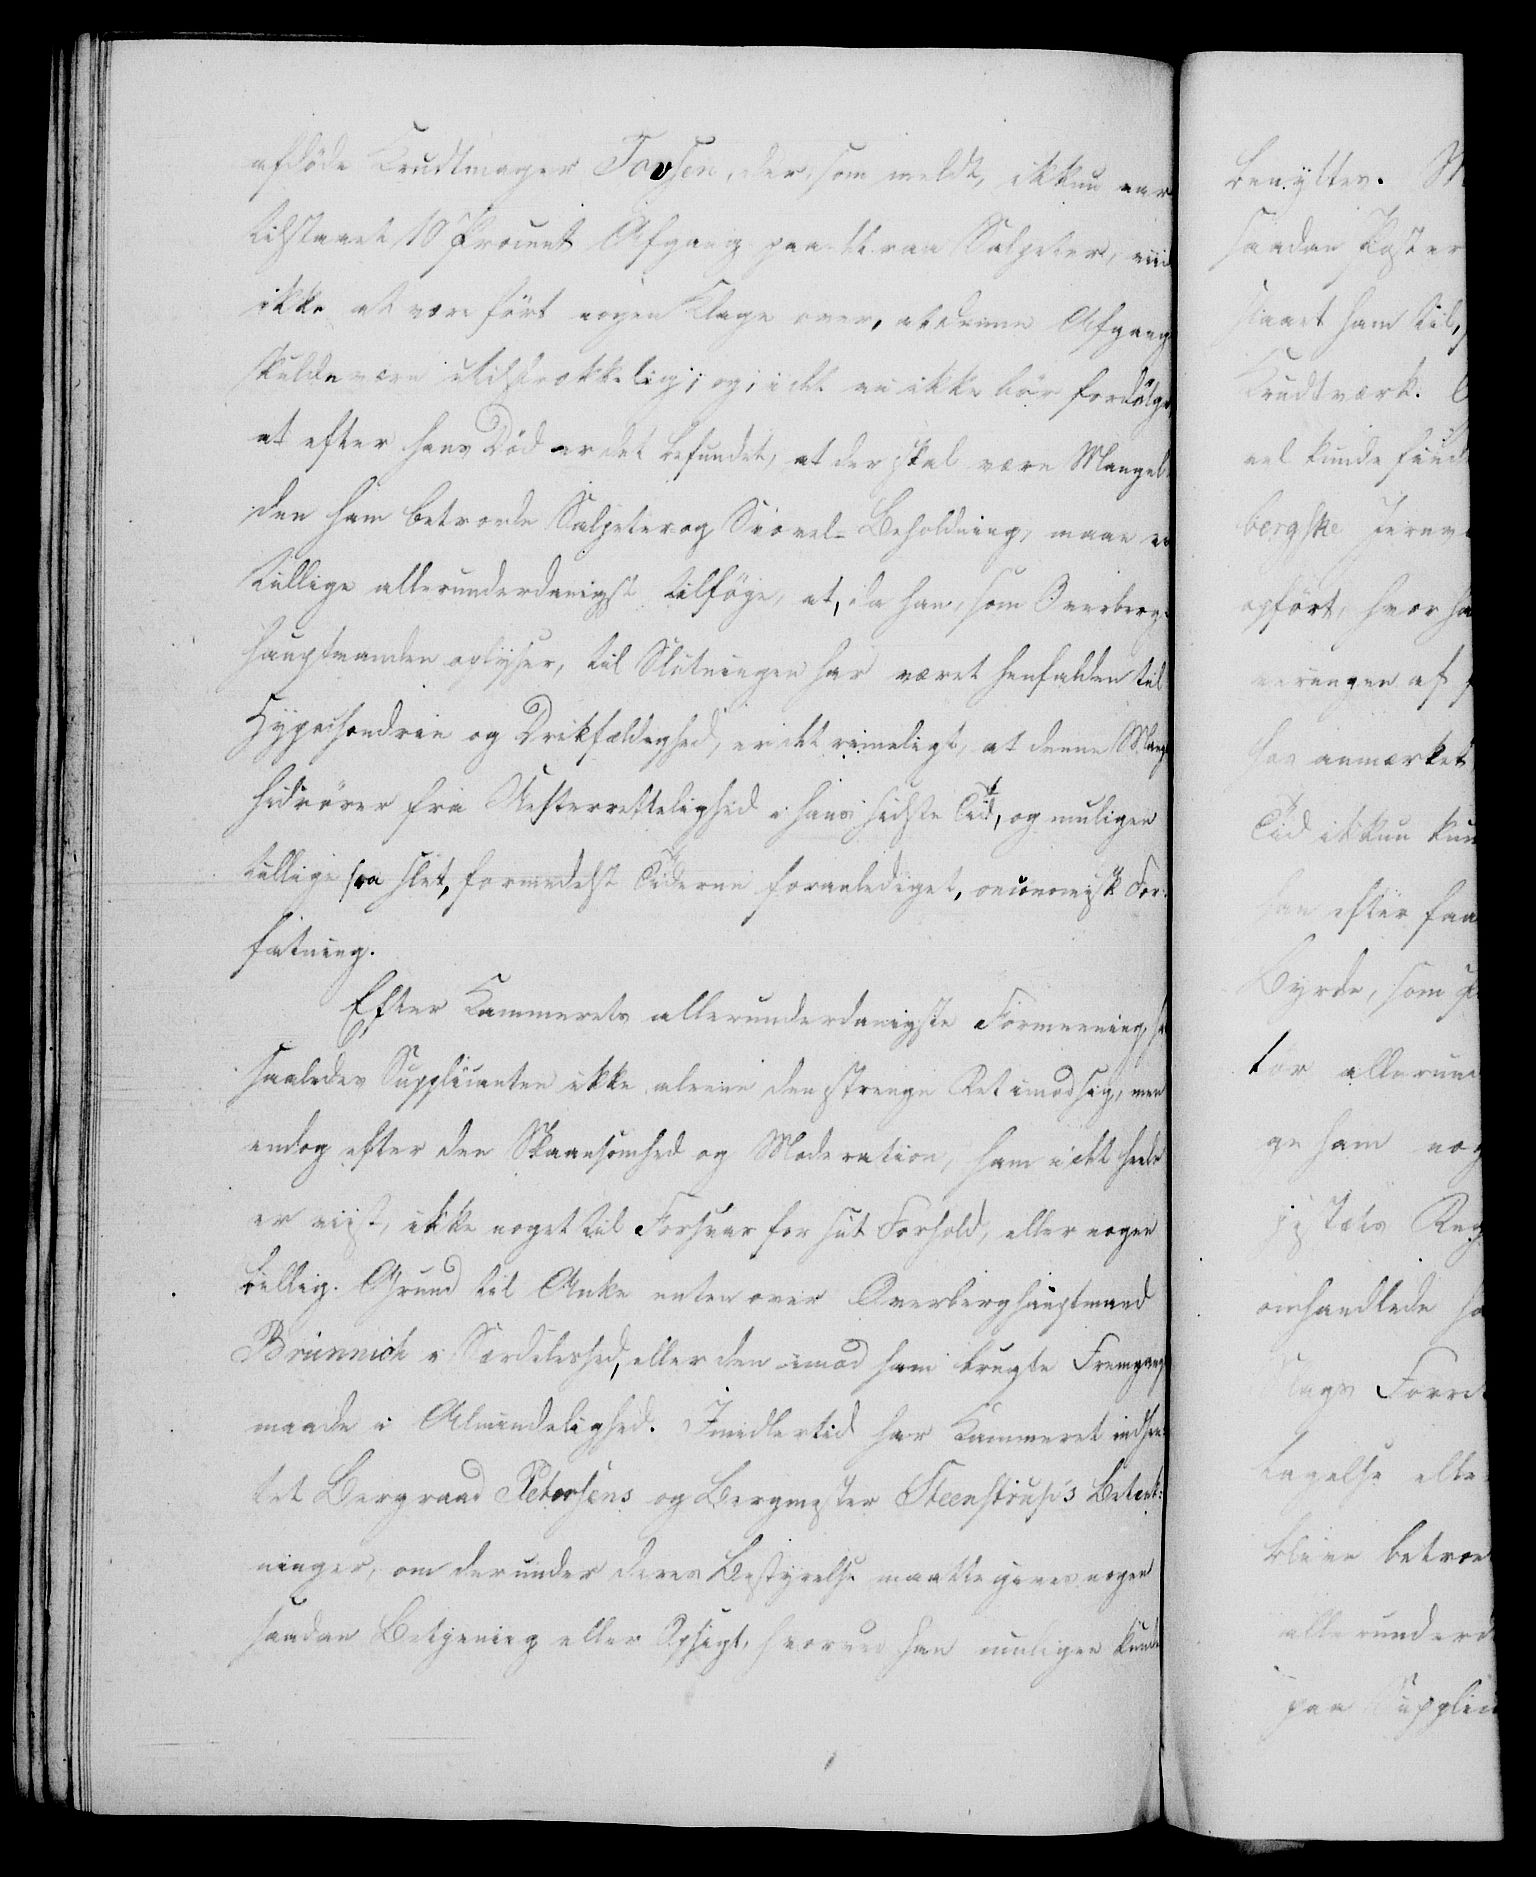 afdöde Krudtmager Tovsen, der, som meldt, ikkun var
tilstaaet 10 Procent Afgang paa det raa Salpeter, viid
ikke at være fört nogen Klage over, at denne Afgang
skulde være utilstrækkelig; og, idet vi ikke bör fordölge,
at efter hans Död er det befundet, at der skal være Mangel
den ham betroede Salpeter og Svovel-Beholdning, maae vi
tillige allerunderdanigst tilföje, at, da han, som Overberg-
hauptmanden oplyser, til Slutningen har været henfalden til
Hypochondrie og Drikfældighed, er det rimeligt, at denne Mang
hidrörer fra Uefterrettelighed i hans sidste Tid, og muligen
tillige fra slet, formedelst Tiderne foranlediget, oeconomisk For-
fatning.
Efter Kammerets allerunderdanigste Formeening, ha
saaledes Supplicanten ikke alene den strenge Ret imod sig, men
endog efter den Skaansomhed og Moderation, ham i det heele
er viist, ikke noget til Forsvar for sit Forhold, eller nogen
billig Grund til Anke enten over Overberghauptmand
Brünnich i Særdeleshed, eller den imod ham brugte Fremgangs
maade i Almindelighed. Imidlertid har Kammeret indhen-
tet Bergraad Petersens og Bergmester Steenstrups Betænk-
ninger, om der under deres Bestyrelse maatte gives nogen
saadan Betjening eller Opsigt, hvorved han muligen kunde
benyttes.
saadan Post er
staaet ham til,
Krudtværk.
vel kunde finde
bergske Jernv
opfört, hvor ha
neringen af
har anmærket
Tid ikkun kun
han efter faa
Byrde, som
tör allerun
ge ham nog
omhandlede
Forre
tagelse elle
blive betroe
allerunderd
paa Supplic